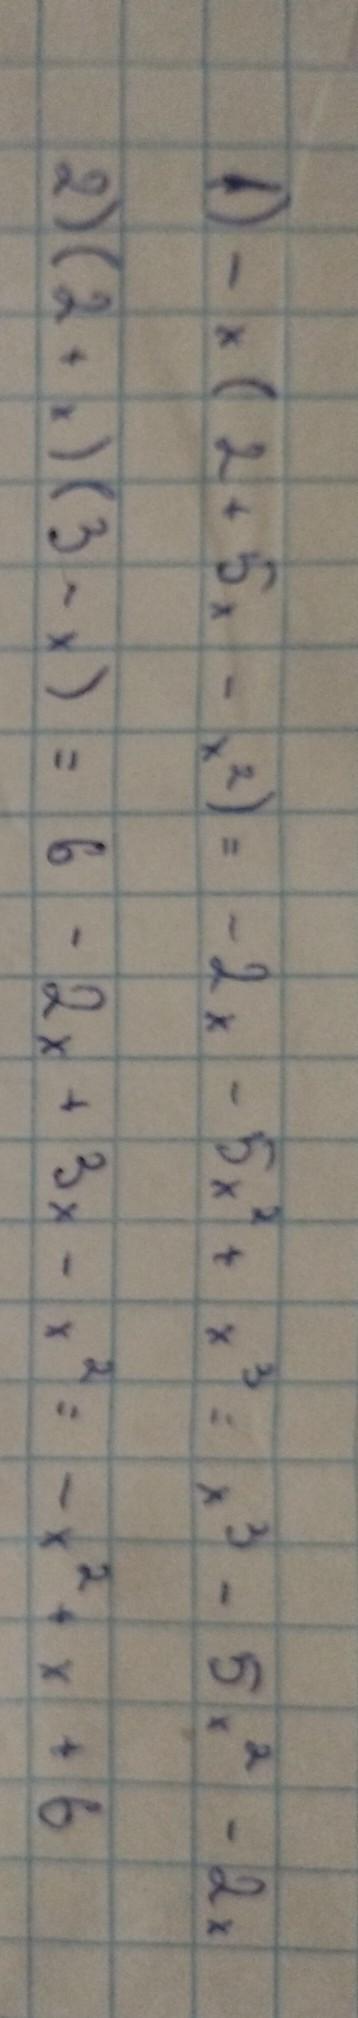 1) - x(2 + 5x - x²) = -2x - 5x² + x³ = x³ - 5x² - 2x
2) (2 + x)(3 - x) = 6 - 2x + 3x - x² = -x² + x + 6